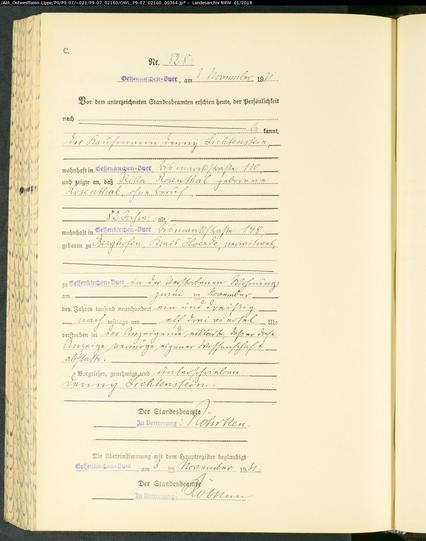 /Abt_Ostwestfalen-Lippe/P9/P9-07/~021/P9-07_02160/OWL_P9-07_02160_00364.jp* - Landesarchiv NRW 01/2018
C.
Nr. 828.
Gelsenkirchen-Buer, am 3. November 1931.
Vor dem unterzeichneten Standesbeamten erschien heute, der Persönlichkeit
nach
kannt,
der Kaufmann Lichtenstein,
wohnhaft in Gelsenkirchen-Buer Bismarckstraße
und zeigte an, daß Rosenthal geborene
Rosenthal, ohne Beruf,
82 Jahre alt,
wohnhaft in Gelsenkirchen-Buer Bismarckstraße 148,
geboren zu Berghofen, Kreis Hoerde, verwitwet,
zu Gelsenkirchen-Buer in der Verstorbenen Wohnung
am zwei ten November
des Jahres tausend neunhundert ein und dreißig
nach mittags um elf drei viertel Uhr
verstorben sei. Der Anzeigende erklärte, daß er diese
Anzeige vermöge eigener Wissenschaft
abstatte.
Vorgelesen, genehmigt und unterschrieben
Lichtenstein.
Der Standesbeamte
In Vertretung:
Die Übereinstimmung mit dem Hauptregister beglaubigt
Gelsenkirchen-Buer am 3 ten November 1931.
Der Standesbeamte
In Vertretung: